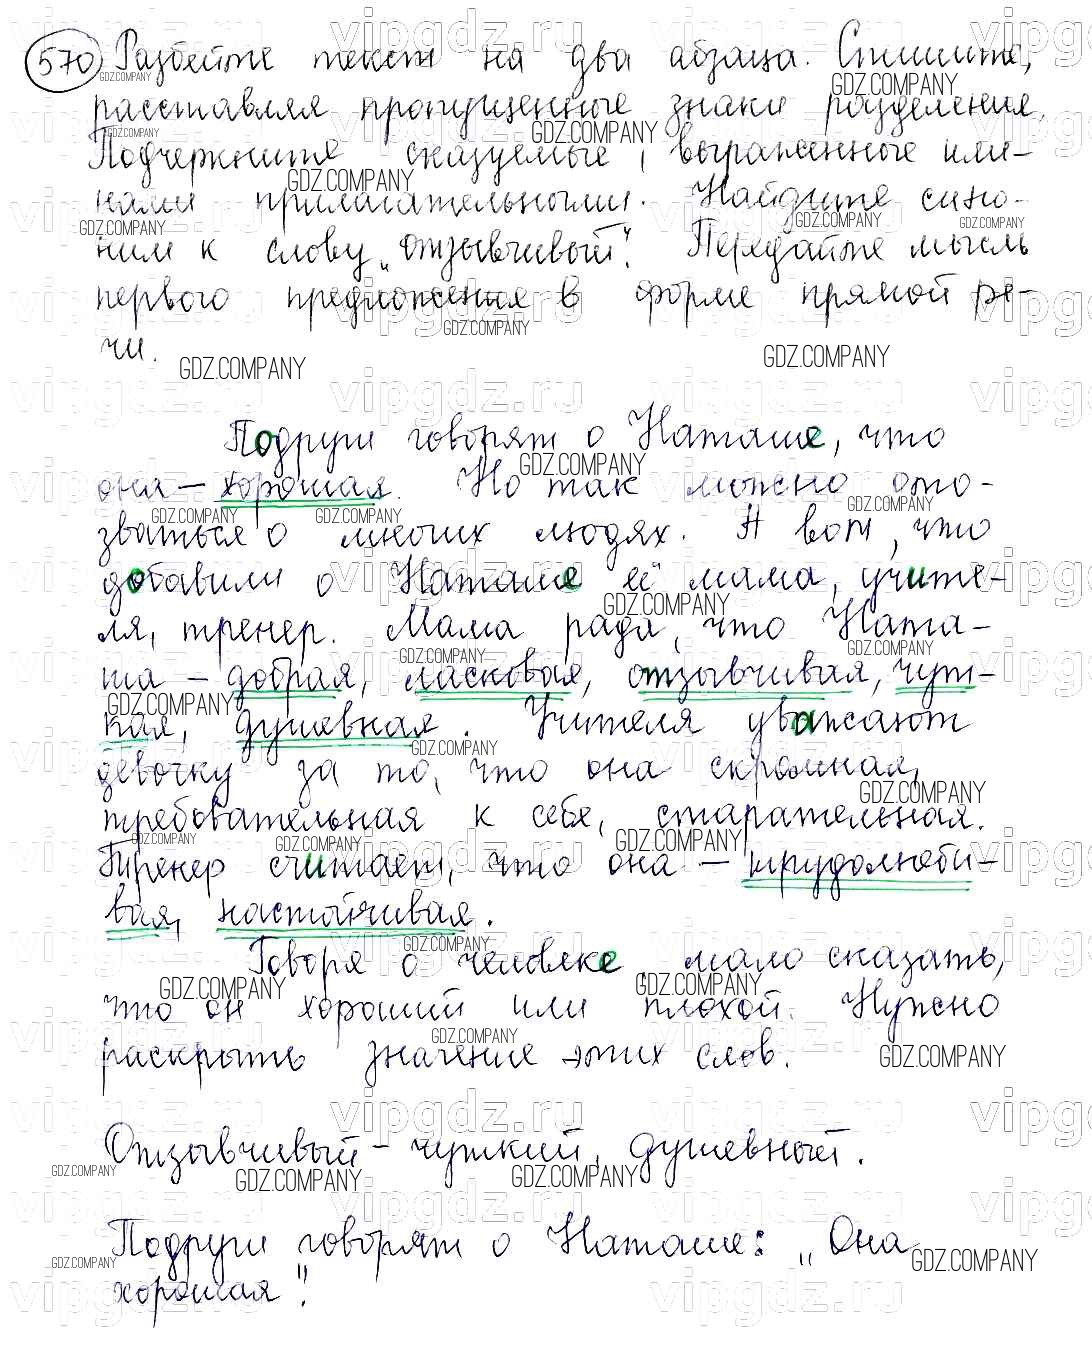 570 Разбейте текст на два абзаца. Спишите,
расставляя пропущенные знаки разделения.
Подчеркните сказуемые, выраженные име-
нами прилагательными. Найдите сино-
ним к слову „отзывчивый“. Передайте мысль
первого предложения в форме прямой ре-
чи.
Подруги говорят о Наташе, что
она – хорошая. Но так можно ото-
зваться о многих людях. А вот, что
добавили о Наташе её мама, учите-
ля, тренер. Мама рада, что Ната-
ша – добрая, ласковая, отзывчивая, чут-
кая, душевная. Учителя уважают
девочку за то, что она скромная,
требовательная к себе, старательная.
Тренер считает, что она – трудолюби-
вая, настойчивая.
Говоря о человеке, мало сказать,
что он хороший или плохой. Нужно
раскрыть значение этих слов.
Отзывчивый – чуткий, душевный.
Подруги говорят о Наташе: „Она
хорошая“.
GDZ.COMPANY
vipgdz.ru